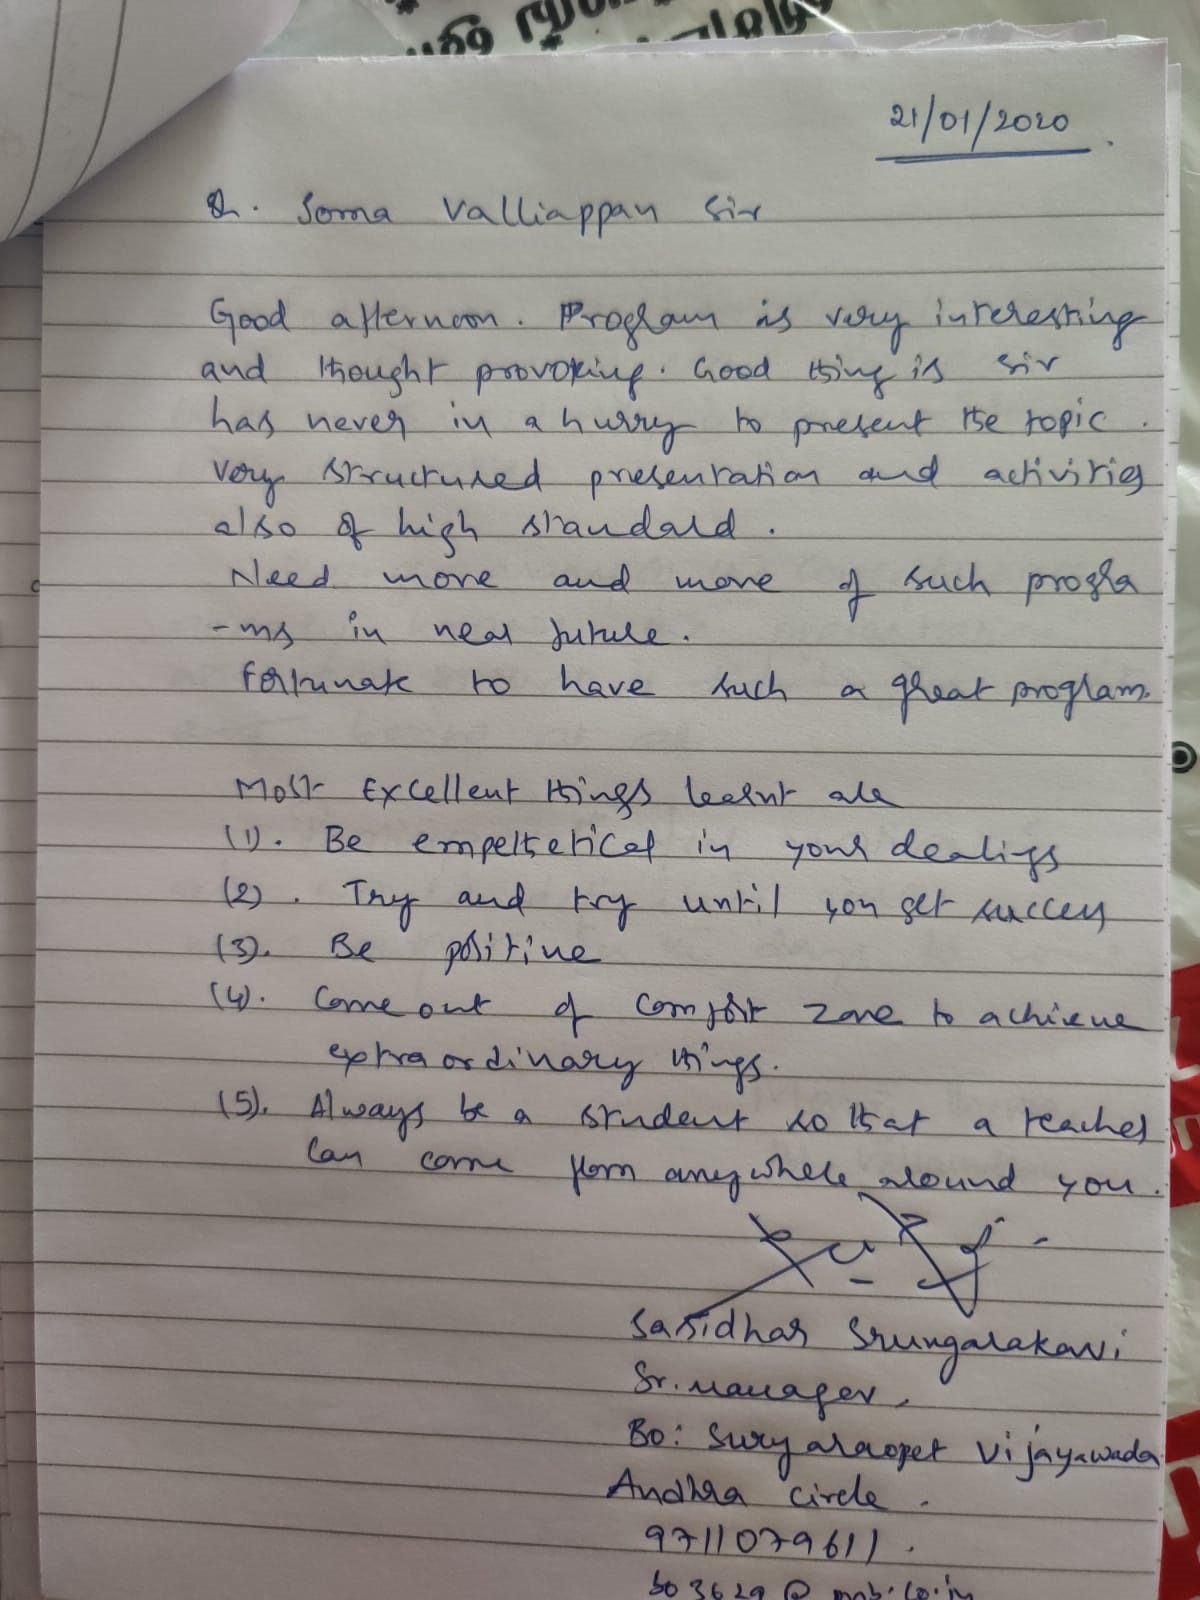 21/01/2020
Soma Valliappan Sir
Good afternoon. Program is very interesting
and thought provoking. Good thing is sir
has never in a hurry to present the topic.
very structured presentation and activities
also of high standard.
Need more and more of such progra
-ms in near future.
Fortunate to have such a great program.
Most Excellent things learnt are
(1). Be empethetical in your dealings
(2). Try and try until you get success
(3). Be positive
(4). Come out of comfort zone to achieve
extra ordinary things.
(5). Always be a student so that a teacher
can come from anywhere around you.
Sasidhar Srungarakavi
Sr. Manager,
Bo: Suryaraopet Vijayawada
Andhra circle.
9711079611.
bo3629@pnb.co.in